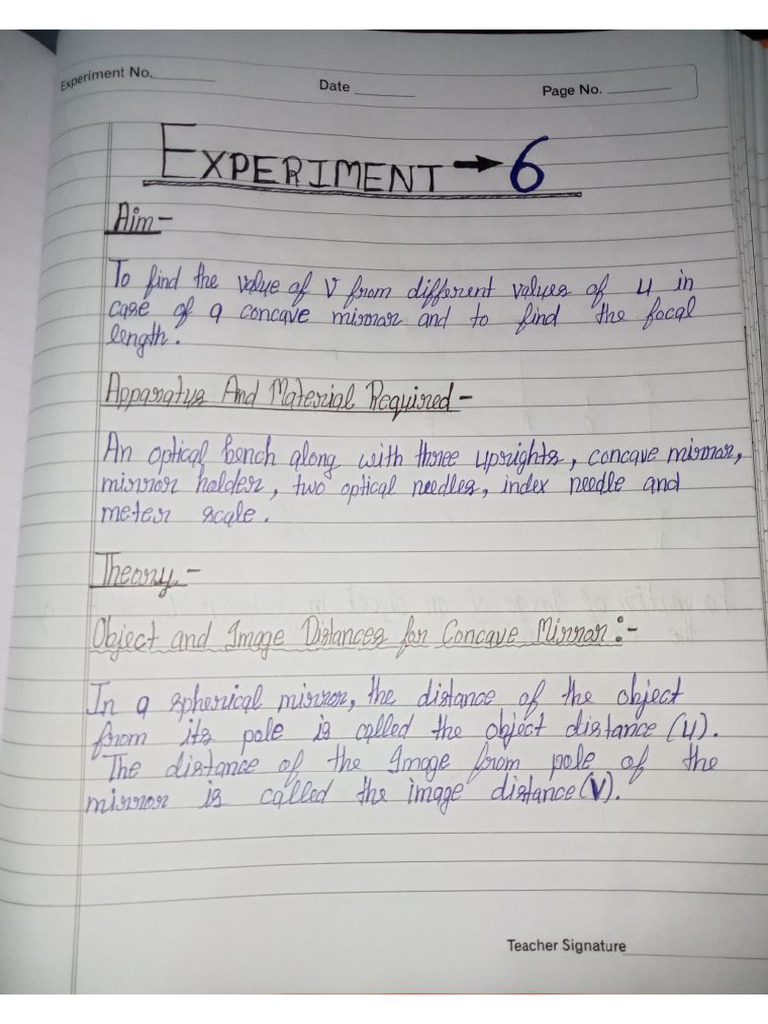 Experiment No.
Date
Page No.
EXPERIMENT → 6
Aim-
To find the value of V from different values of u in
case of a concave mirror and to find the focal
length.
Apparatus And Material Required-
An optical bench along with three uprights, concave mirror,
mirror holder, two optical needles, index needle and
meter scale.
Theory-
Object and Image Distances for Concave Mirror:-
In a spherical mirror, the distance of the object
from its pole is called the object distance (u).
The distance of the Image from pole of the
mirror is called the image distance (V).
Teacher Signature